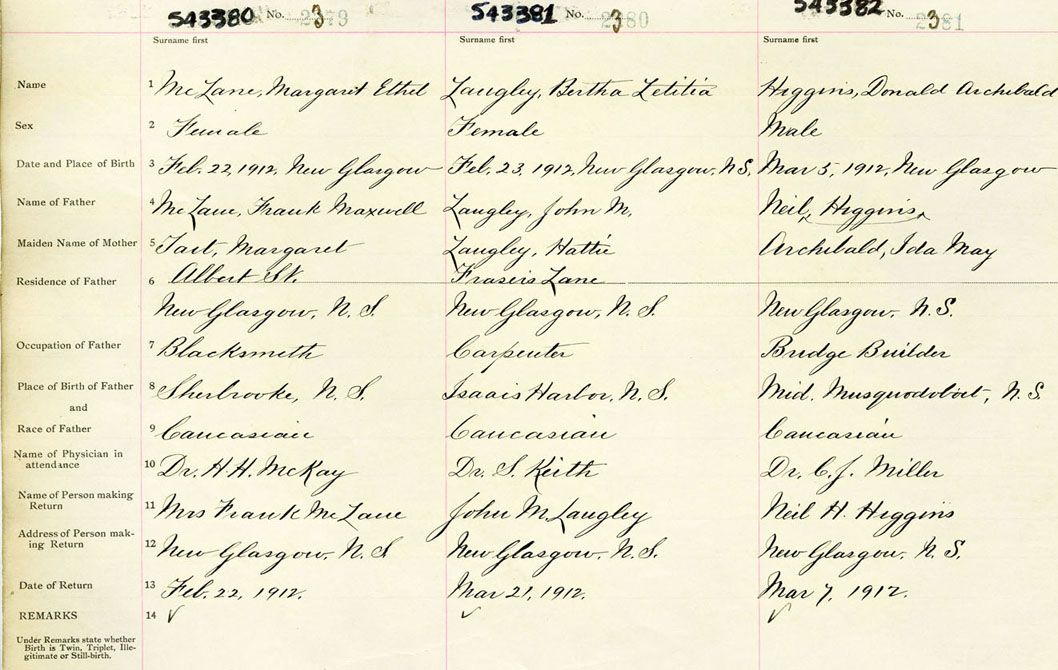 543380 No. 3 2379 543381 No. 3 2380 543382 No. 3 2381
Surname first Surname first Surname first
Name 1 McLane, Margaret Ethel Langley, Bertha Letitia Higgins, Donald Archibald
Sex 2 Female Female Male
Date and Place of Birth 3 Feb. 22, 1912, New Glasgow Feb. 23, 1912, New Glasgow, N.S. Mar 5, 1912, New Glasgow
Name of Father 4 McLane, Frank Maxwell Langley, John M. Neil, Higgins
Maiden Name of Mother 5 Tait, Margaret Langley, Hattie Archibald, Ida May
Residence of Father 6 Albert St. Frasers Lane
New Glasgow, N. S. New Glasgow, N. S. New Glasgow, N. S.
Occupation of Father 7 Blacksmith Carpenter Bridge Builder
Place of Birth of Father 8 Sherbrooke, N. S. Isaacs Harbor, N. S. Mid. Musquodoboit, N. S.
and
Race of Father 9 Caucasian Caucasian Caucasian
Name of Physician in
attendance 10 Dr. H. H. McKay Dr. S. Keith Dr. C. J. Miller
Name of Person making
Return 11 Mrs Frank McLane John M. Langley Neil H. Higgins
Address of Person mak-
ing Return 12 New Glasgow, N. S. New Glasgow, N. S. New Glasgow, N. S.
Date of Return 13 Feb. 22, 1912. Mar 21, 1912. Mar 7, 1912.
REMARKS 14 ✓ ✓ ✓
Under Remarks state whether
Birth is Twin, Triplet, Ille-
gitimate or Still-birth.